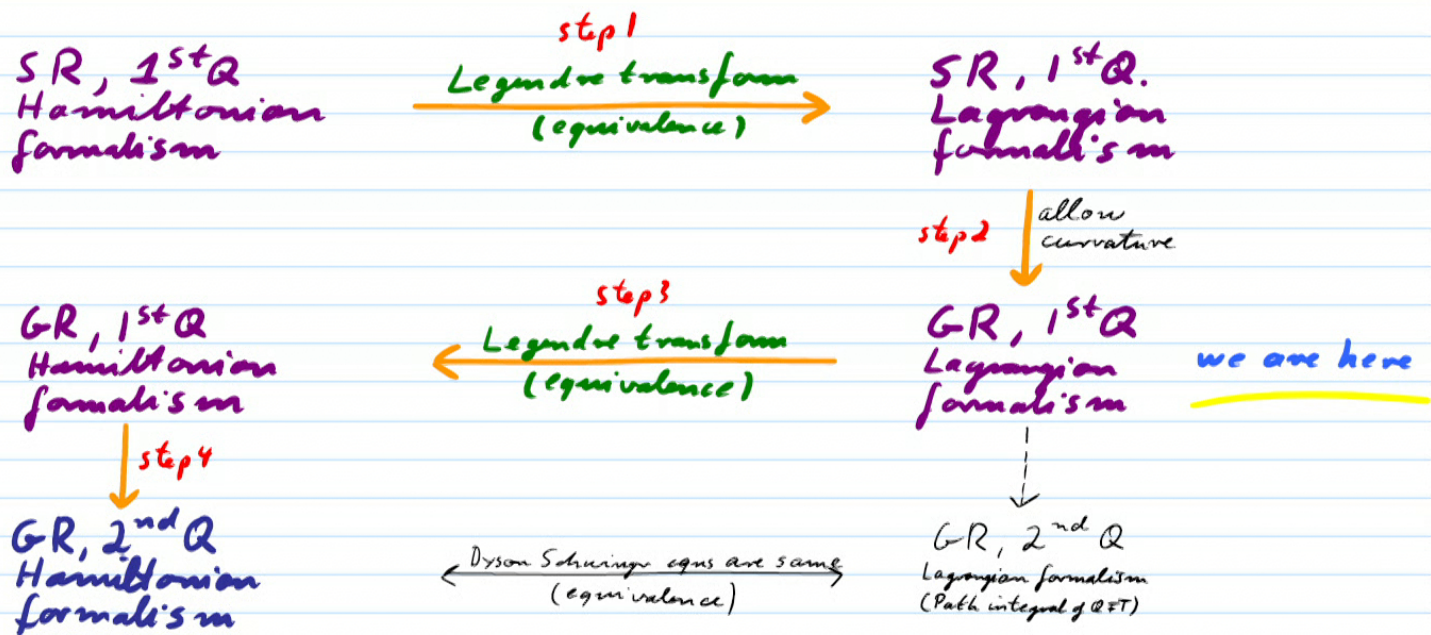 step 1
SR, 1st Q
Hamiltonian
formalism
Legendre transform
(equivalence)
SR, 1st Q.
Lagrangian
formalism
step 2
allow
curvature
GR, 1st Q
Hamiltonian
formalism
step 3
Legendre transform
(equivalence)
GR, 1st Q
Lagrangian
formalism
we are here
step 4
GR, 2nd Q
Hamiltonian
formalism
Dyson Schwinger eqns are same
(equivalence)
GR, 2nd Q
Lagrangian formalism
(Path integral of QFT)